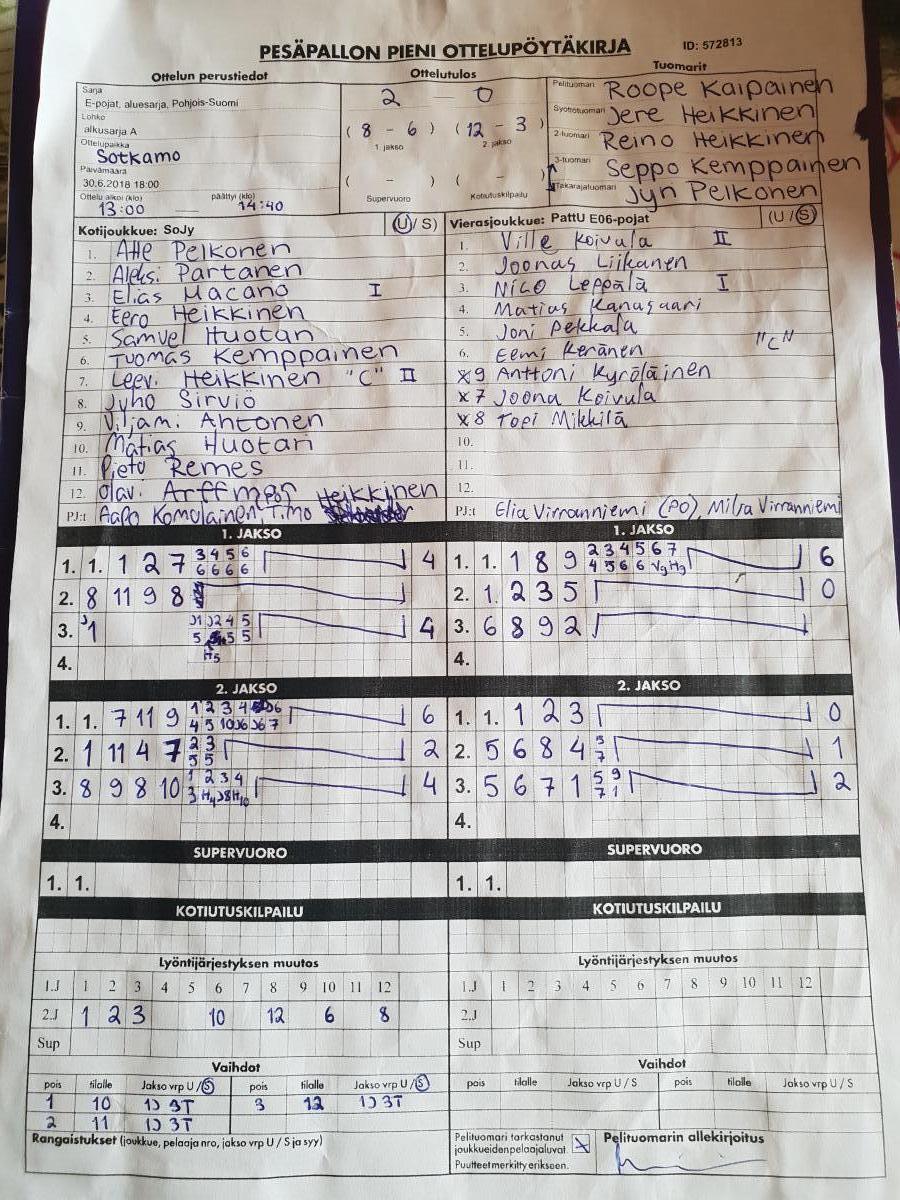 PESÄPALLON PIENI OTTELUPÖYTÄKIRJA ID: 572813
Ottelun perustiedot Ottelutulos Tuomarit
Sarja
E-pojat, aluesarja, Pohjois-Suomi
Lohko
alkusarja A
Ottelupaikka
Sotkamo
Päivämäärä
30.6.2018 18:00
Ottelu alkoi (klo) päättyi (klo)
13:00 14:40
2 - 0
( 8 - 6 ) ( 12 - 3 )
1. jakso 2. jakso
( - ) ( - )
Supervuoro Kotiutuskilpailu
Pelituomari Roope Kaipainen
Syöttötuomari Jere Heikkinen
2-tuomari Reino Heikkinen
3-tuomari Seppo Kemppainen
Takarajatuomari Jyn Pelkonen
Kotijoukkue: SoJy (U/ S)
1. Atte Pelkonen
2. Aleksi Partanen
3. Elias Macano I
4. Eero Heikkinen
5. Samuel Huotari
6. Tuomas Kemppainen
7. Leevi Heikkinen "C" II
8. Juho Sirviö
9. Viljami Ahtonen
10. Matias Huotari
11. Pieto Remes
12. Olavi Arffman
PJ:t Aapo Komulainen Timo Heikkinen
Vierasjoukkue: PattU E06-pojat (U /S)
1. Ville Koivula II
2. Joonas Liikanen
3. Nico Leppälä I
4. Matias Kanusaari
5. Joni Pekkala
6. Eemi Keränen "C"
x9 Anttoni Kyröläinen
x7 Joona Koivula
x8 Topi Mikkilä
10.
11.
12.
PJ:t Elia Virranniemi (PO), Milja Virranniemi
1. JAKSO
1. 1. 1 2 7 3 4 5 6 4
6 6 6 6
2. 8 11 9 8
3. 1 J1 J2 4 5 4
5 5 5
H5
4.
1. JAKSO
1. 1. 1 8 9 2 3 4 5 6 7 6
4 5 6 6 Vg Hg
2. 1. 2 3 5 0
3. 6 8 9 2
4.
2. JAKSO
1. 1. 7 11 9 1 2 3 4 6 6
4 5 10 J6 J6 7
2. 1 11 4 7 2 3 2
5 5
3. 8 9 8 10 1 2 3 4 4
3 H4 J8 H10
4.
2. JAKSO
1. 1. 1 2 3 0
2. 5 6 8 4 5 1
7
3. 5 6 7 1 5 9 2
7 1
4.
SUPERVUORO
1. 1.
SUPERVUORO
1. 1.
KOTIUTUSKILPAILU
KOTIUTUSKILPAILU
Lyöntijärjestyksen muutos
1.J 1 2 3 4 5 6 7 8 9 10 11 12
2.J 1 2 3 10 12 6 8
Sup
Lyöntijärjestyksen muutos
1.J 1 2 3 4 5 6 7 8 9 10 11 12
2.J
Sup
Vaihdot
pois tilalle Jakso vrp U /S pois tilalle Jakso vrp U /S
1 10 1J 3T 3 12 1J 3T
2 11 1J 3T
Vaihdot
pois tilalle Jakso vrp U / S pois tilalle Jakso vrp U / S
Rangaistukset (joukkue, pelaaja nro, jakso vrp U / S ja syy)
Pelituomari tarkastanut
joukkueiden pelaajaluvat. x
Puutteet merkitty erikseen.
Pelituomarin allekirjoitus